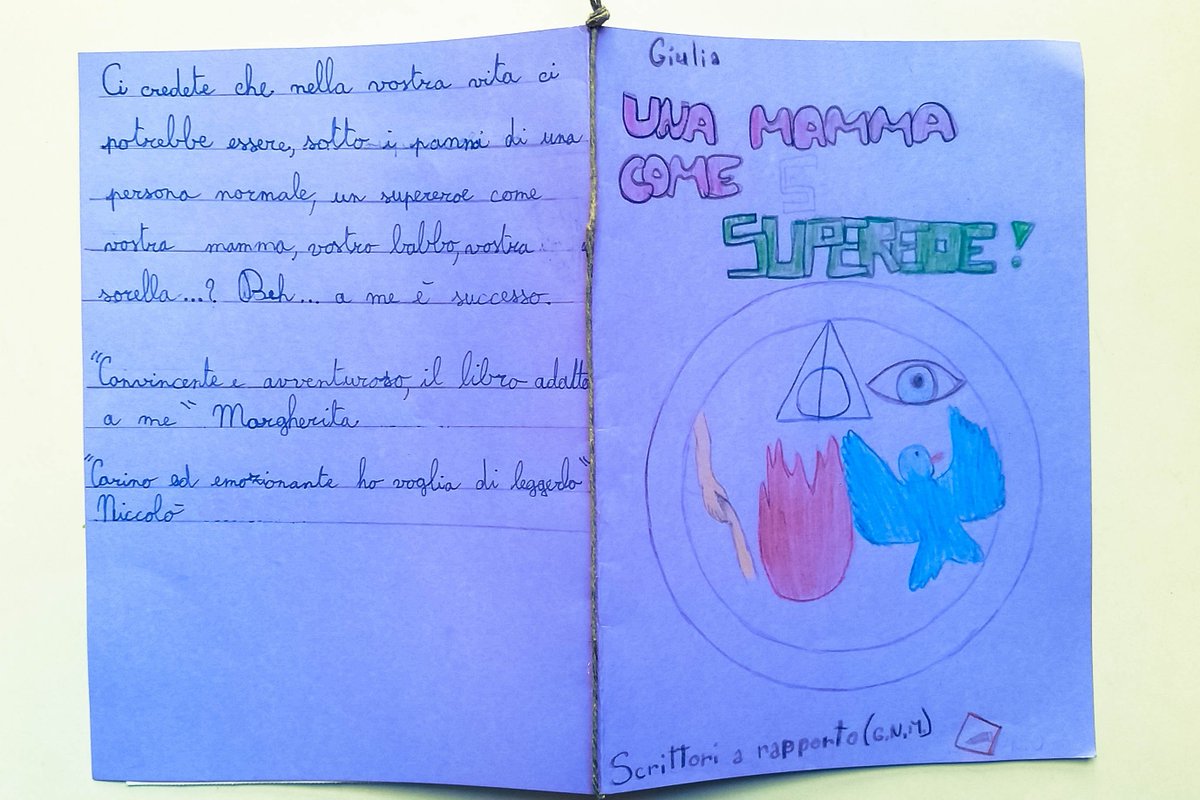 Ci credete che nella vostra vita ci
potrebbe essere, sotto i panni di una
persona normale, un supereroe come
vostra mamma, vostro babbo, vostra
sorella...? Beh... a me è successo.
"Convincente e avventuroso, il libro adatto
a me" Margherita
"Carino ed emozionante ho voglia di leggerlo"
Niccolò
Giulia
UNA MAMMA
COME S
SUPEREROE!
Scrittori a rapporto (G.N.M)